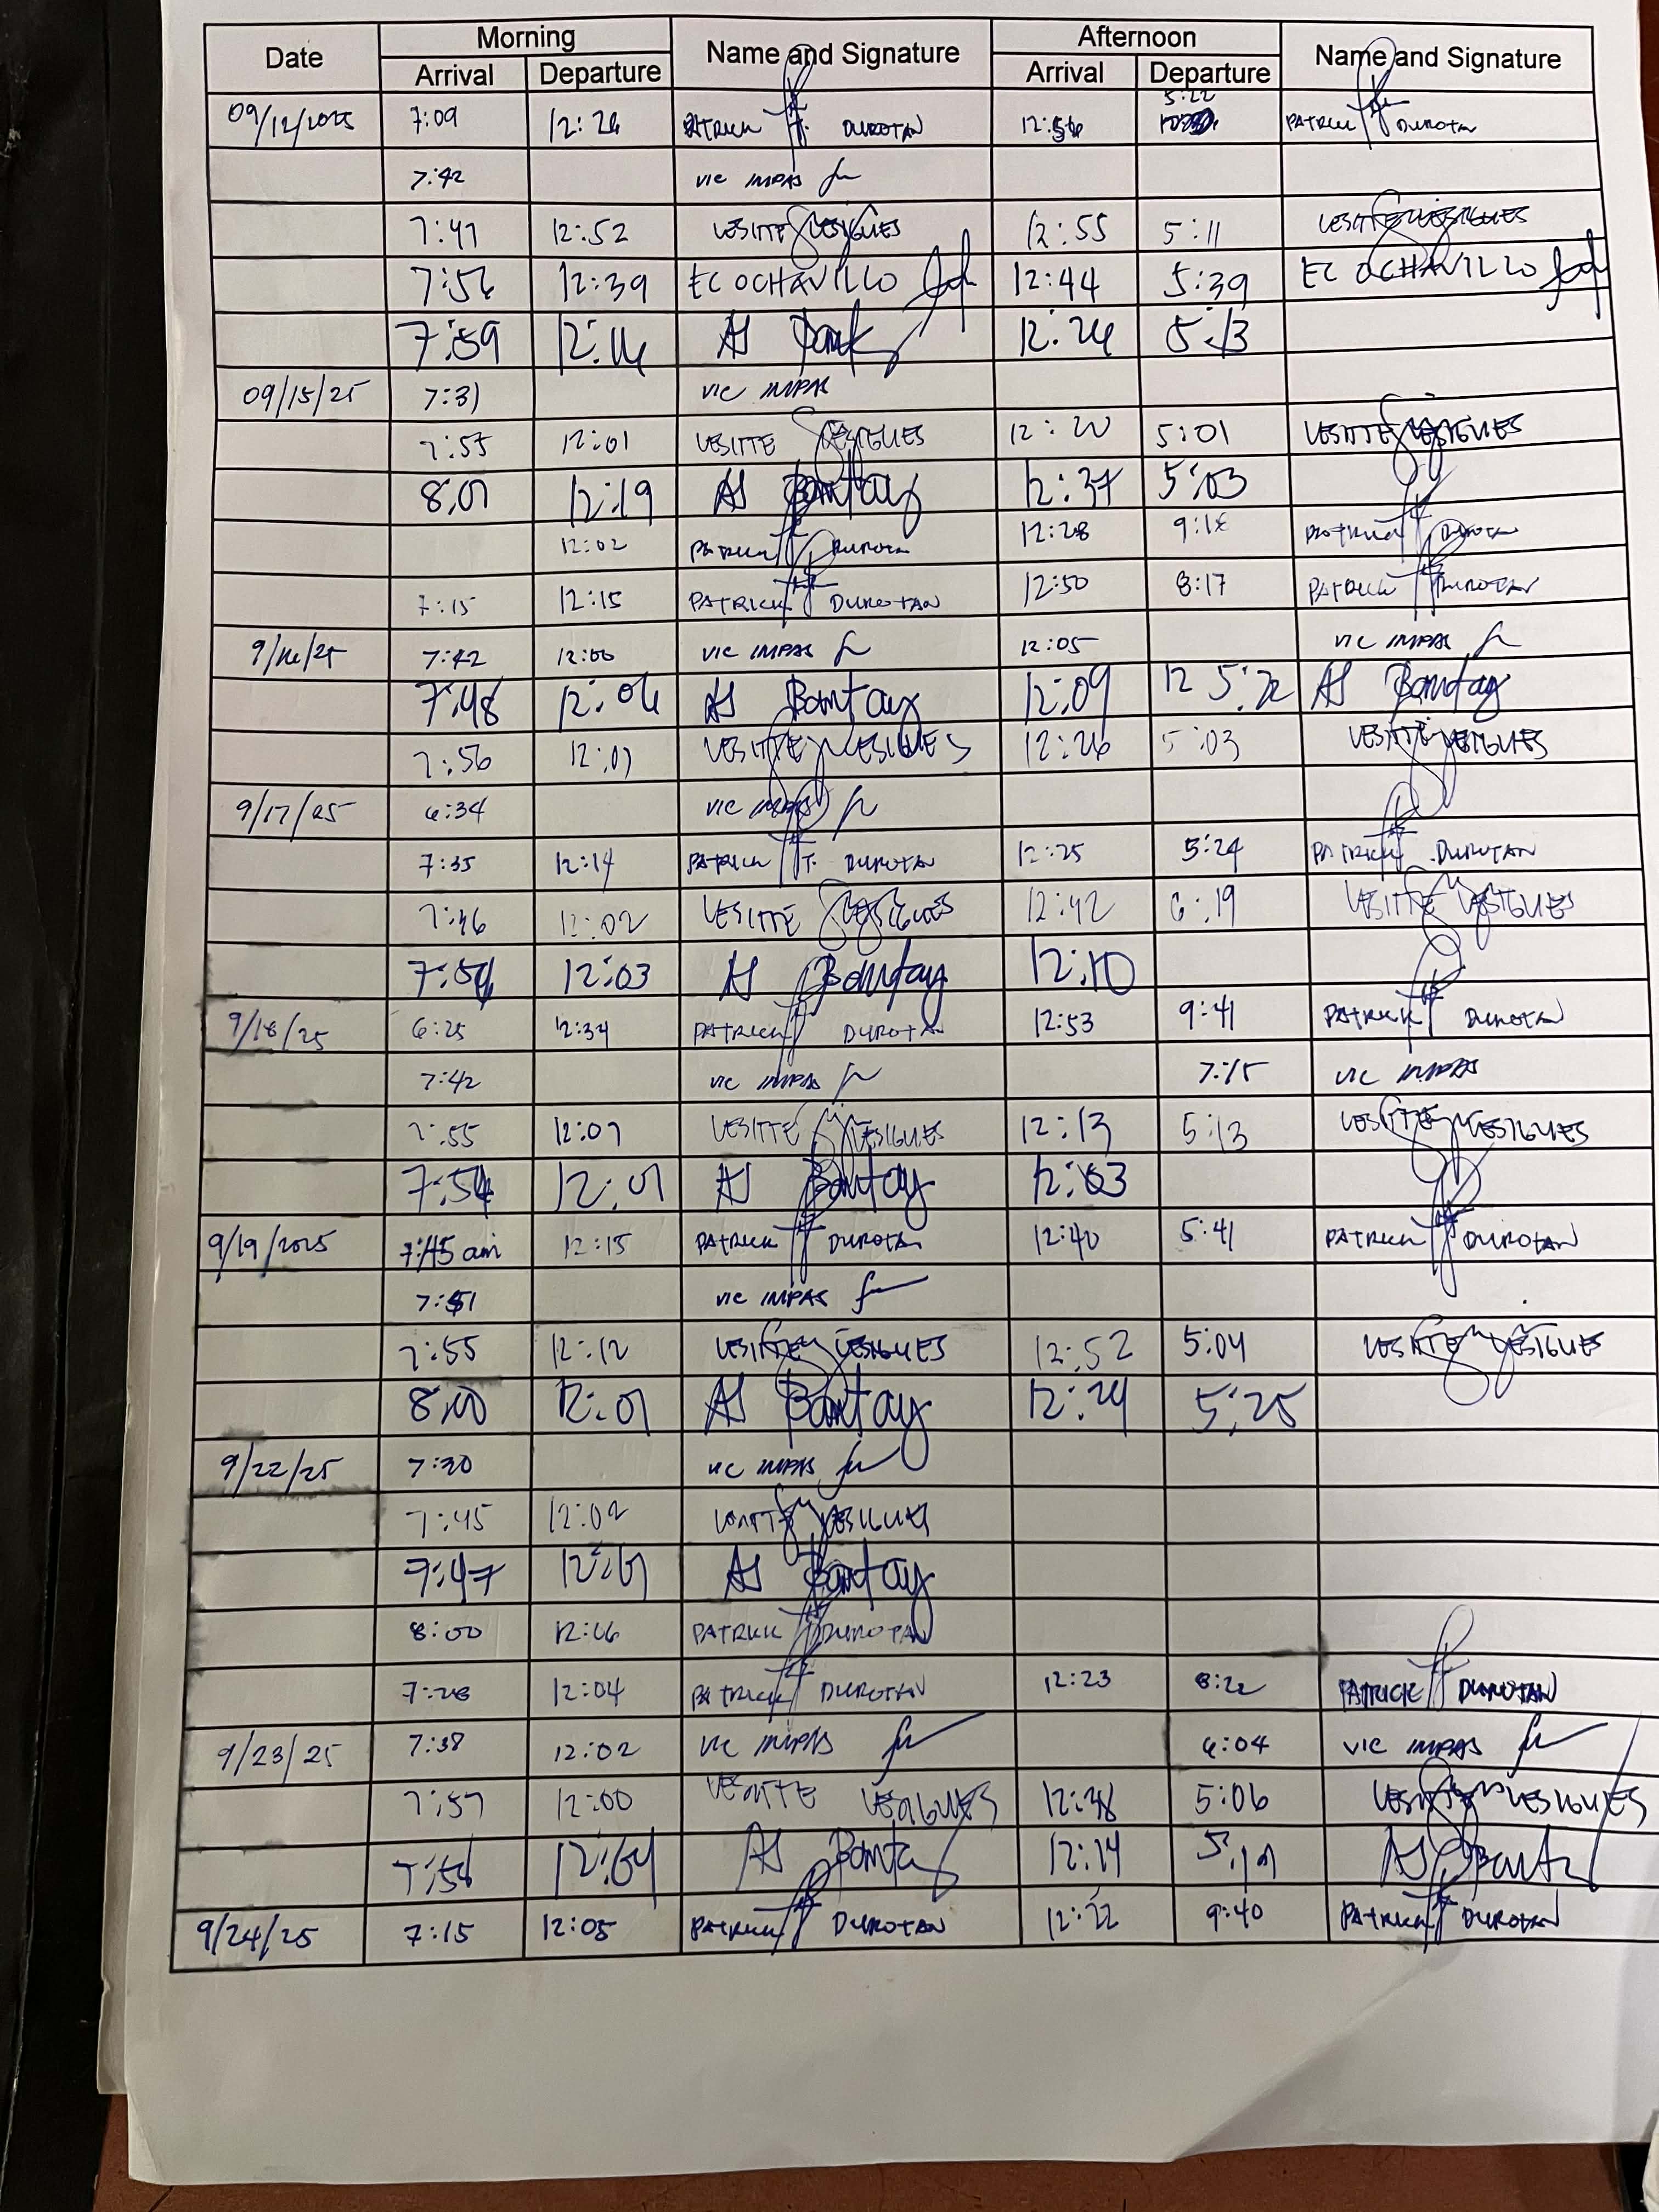 Date Morning Name and Signature Afternoon Name and Signature
Arrival Departure Arrival Departure
09/12/2025 7:09 12:26 PATRICK T. DUROTAN 12:56 5:22 PATRICK DUROTAN
7:42 VIC IMPAS
7:47 12:52 VESITTE VESIGUES 12:55 5:11 VESITTE VESIGUES
7:56 12:39 EC OCHAVILLO 12:44 5:39 EC OCHAVILLO
7:59 12:16 AJ 12:26 5:13
09/15/25 7:31 VIC IMPAS
7:55 12:01 VESITTE VESIGUES 12:20 5:01 VESITTE VESIGUES
8:01 12:19 AJ Bantay 12:37 5:03
12:02 PATRICK DUROTAN 12:28 9:18 PATRICK DUROTAN
7:15 12:15 PATRICK DUROTAN 12:50 8:17 PATRICK DUROTAN
9/16/25 7:42 12:00 VIC IMPAS 12:05 VIC IMPAS
7:48 12:06 AJ Bantay 12:09 12 5:22 AJ Bantay
7:56 12:07 VESITTE VESIGUES 12:26 5:03 VESITTE VESIGUES
9/17/25 6:34 VIC IMPAS
7:35 12:14 PATRICK T. DUROTAN 12:25 5:24 PATRICK DUROTAN
7:46 12:02 VESITTE VESIGUES 12:42 6:19 VESITTE VESIGUES
12:03 AJ Bantay 12:10
9/18/25 6:25 12:34 PATRICK DUROTAN 12:53 9:41 PATRICK DUROTAN
7:42 VIC IMPAS 7:15 VIC IMPAS
7:55 12:07 VESITTE VESIGUES 12:13 5:13 VESITTE VESIGUES
7:54 12:01 AJ Bantay 12:03
9/19/2025 7:45 am 12:15 PATRICK DUROTAN 12:40 5:41 PATRICK DUROTAN
7:51 VIC IMPAS
7:55 12:12 VESITTE VESIGUES 12:52 5:04 VESITTE VESIGUES
8:00 12:01 AJ Bantay 12:24 5:25
9/22/25 7:30 VIC IMPAS
7:45 12:02 VESITTE VESIGUES
7:47 12:01 AJ Bantay
8:00 12:06 PATRICK DUROTAN
7:28 12:04 PATRICK DUROTAN 12:23 8:22 PATRICK DUROTAN
9/23/25 7:38 12:02 VIC IMPAS 6:04 VIC IMPAS
7:57 12:00 VESITTE VESIGUES 12:38 5:06 VESITTE VESIGUES
7:56 12:04 AJ Bantay 12:14 AJ
9/24/25 7:15 12:05 PATRICK DUROTAN 12:22 9:40 PATRICK DUROTAN